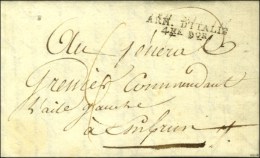 ARM. D'ITALIE
4ME DON
Au Général
Grenier Commandant
l'aile gauche
à